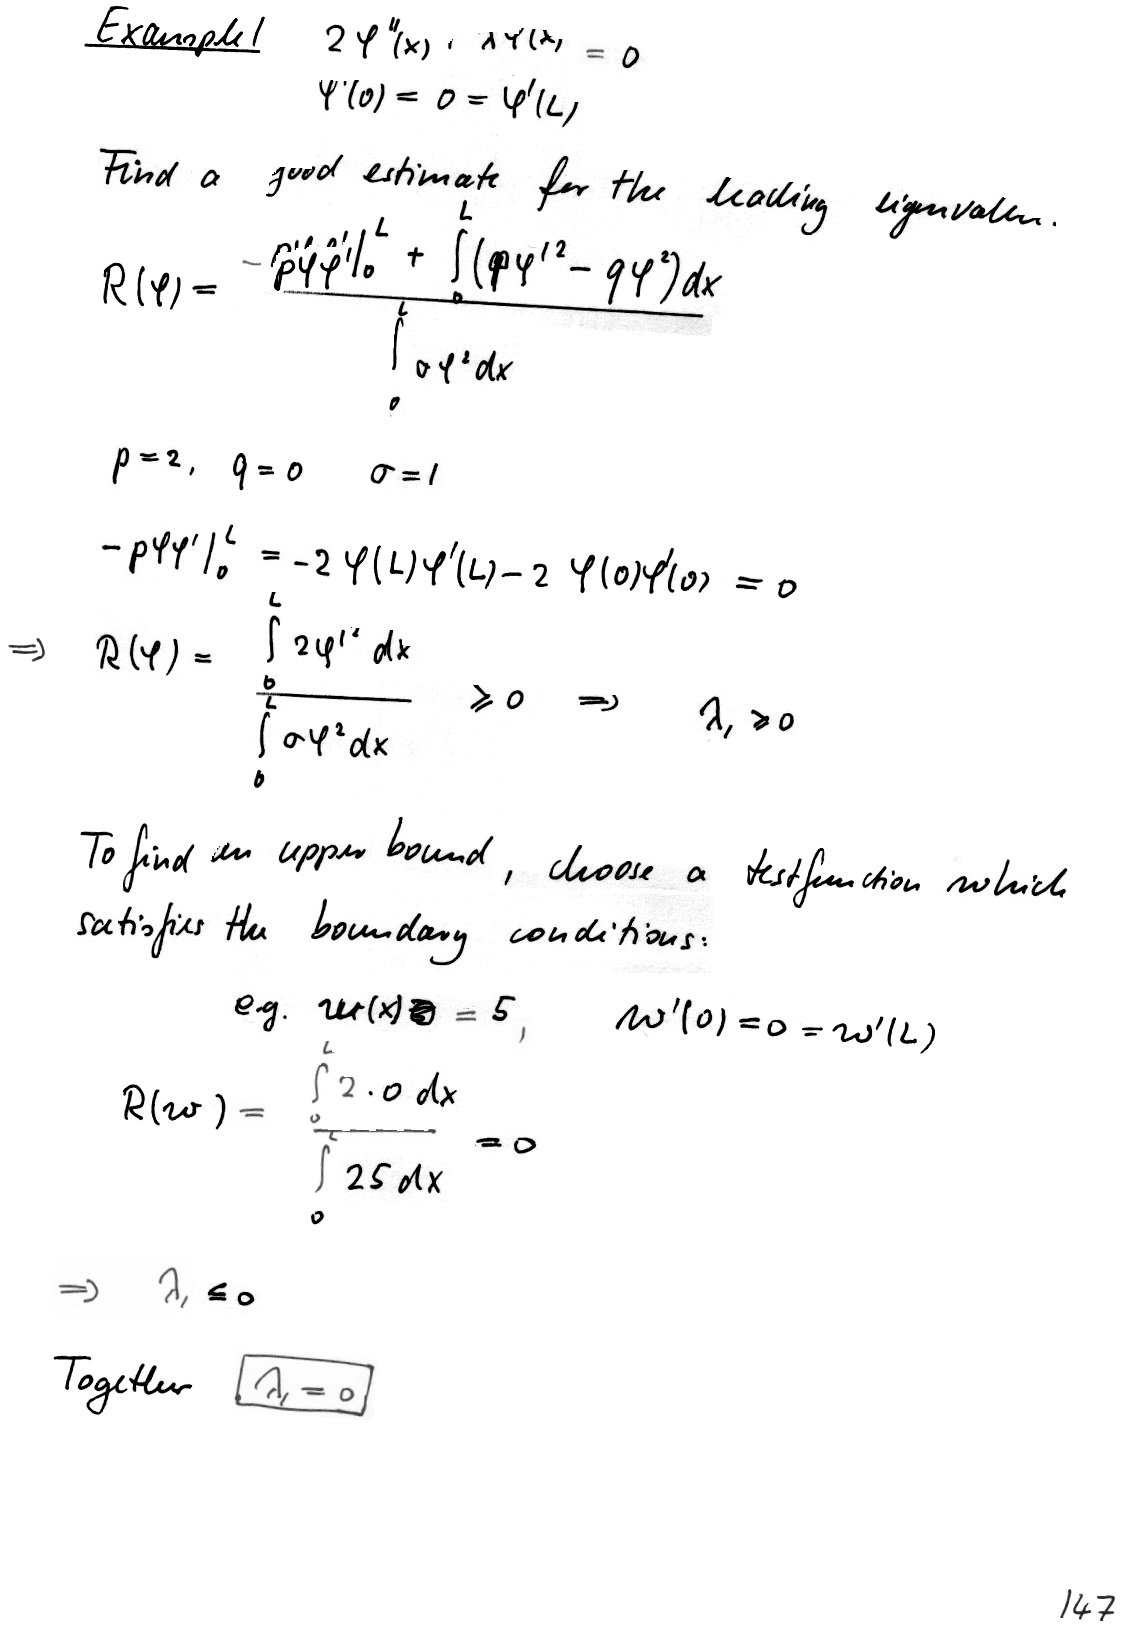 Example 1 2φ''(x) + λφ(x) = 0
φ'(0) = 0 = φ'(L)
Find a good estimate for the leading eigenvalue.
R(φ) = (-pφφ'|₀ᴸ + ∫₀ᴸ (pφ'² - qφ²)dx) / (∫₀ᴸ σφ²dx)
p = 2, q = 0 σ = 1
-pφφ'|₀ᴸ = -2φ(L)φ'(L) - 2φ(0)φ'(0) = 0
⇒ R(φ) = (∫₀ᴸ 2φ'² dx) / (∫₀ᴸ σφ²dx) ≥ 0 ⇒ λ₁ ≥ 0
To find an upper bound, choose a testfunction which
satisfies the boundary conditions:
e.g. w(x) = 5, w'(0) = 0 = w'(L)
R(w) = (∫₀ᴸ 2·0 dx) / (∫₀ᴸ 25 dx) = 0
⇒ λ₁ ≤ 0
Together λ₁ = 0
147